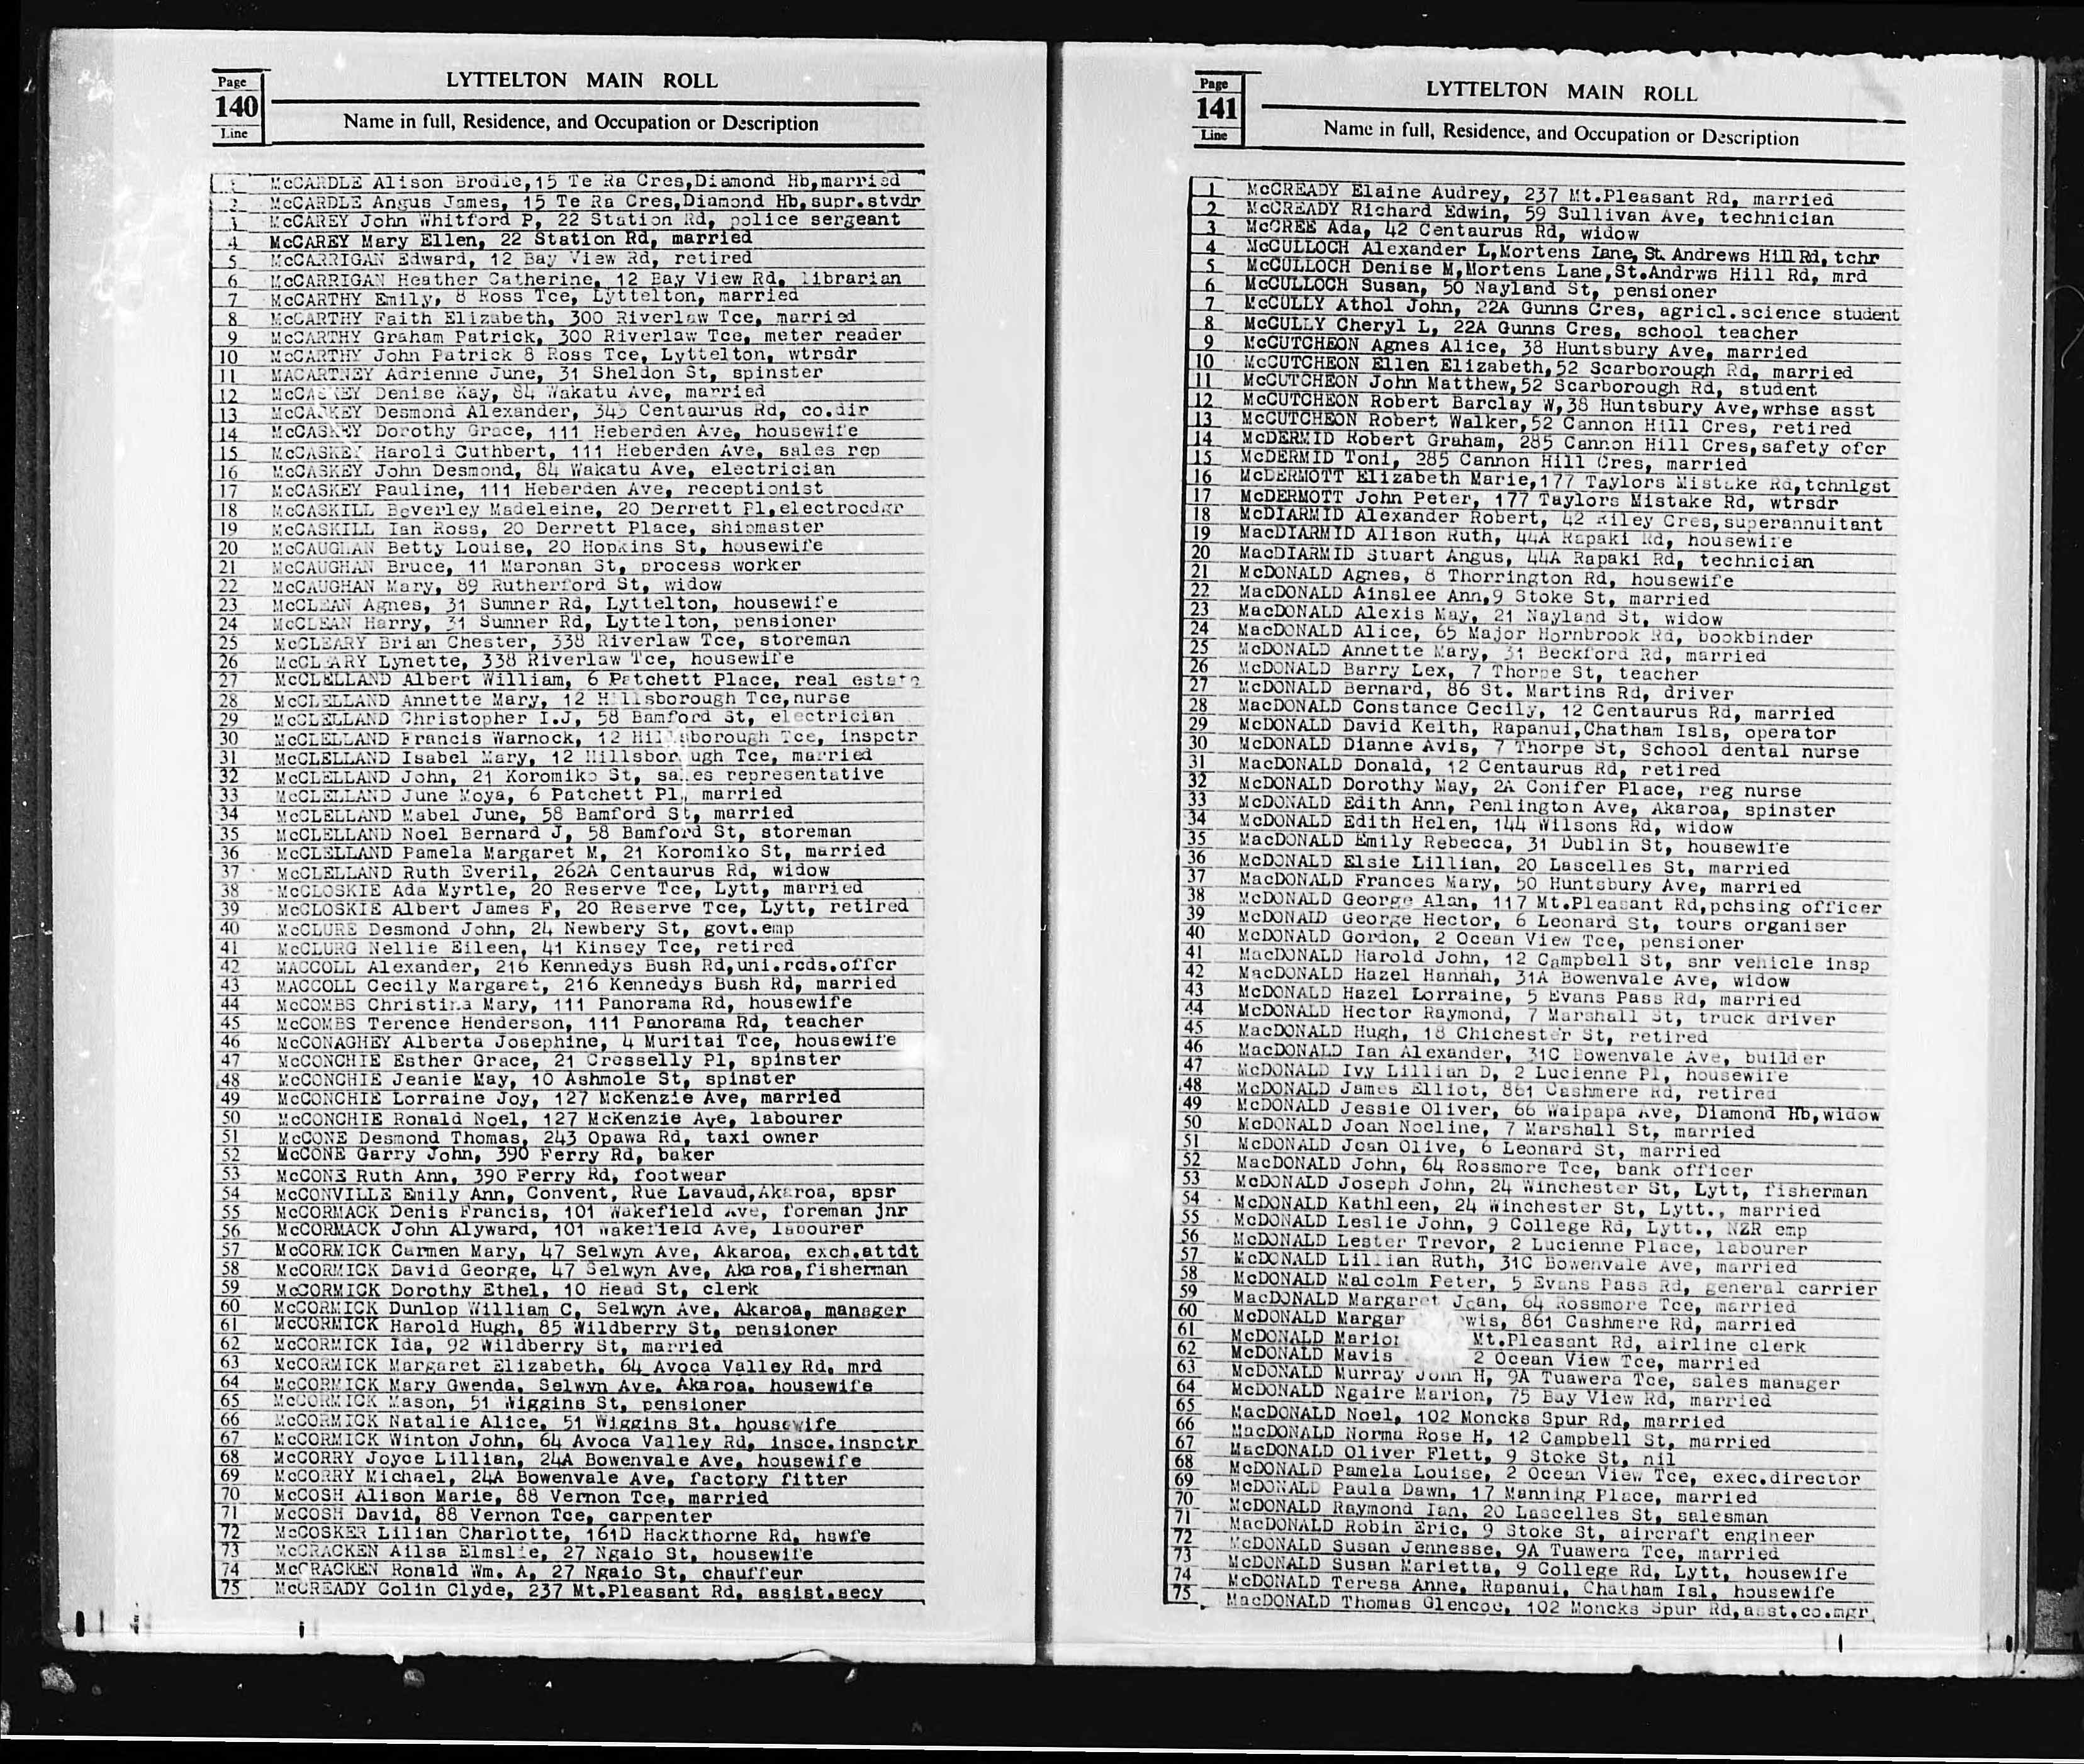 Page
140
Line
LYTTELTON MAIN ROLL
Name in full, Residence, and Occupation or Description
1 McCARDLE Alison Brodie,15 Te Ra Cres,Diamond Hb,married
2 McCARDLE Angus James, 15 Te Ra Cres,Diamond Hb,supr.stvdr
3 McCAREY John Whitford P, 22 Station Rd, police sergeant
4 McCAREY Mary Ellen, 22 Station Rd, married
5 McCARRIGAN Edward, 12 Bay View Rd, retired
6 McCARRIGAN Heather Catherine, 12 Bay View Rd, librarian
7 McCARTHY Emily, 8 Ross Tce, Lyttelton, married
8 McCARTHY Faith Elizabeth, 300 Riverlaw Tce, married
9 McCARTHY Graham Patrick, 300 Riverlaw Tce, meter reader
10 McCARTHY John Patrick 8 Ross Tce, Lyttelton, wtrsdr
11 MACARTNEY Adrienne June, 31 Sheldon St, spinster
12 McCASKEY Denise Kay, 84 Wakatu Ave, married
13 McCASKEY Desmond Alexander, 345 Centaurus Rd, co.dir
14 McCASKEY Dorothy Grace, 111 Heberden Ave, housewife
15 McCASKEY Harold Cuthbert, 111 Heberden Ave, sales rep
16 McCASKEY John Desmond, 84 Wakatu Ave, electrician
17 McCASKEY Pauline, 111 Heberden Ave, receptionist
18 McCASKILL Beverley Madeleine, 20 Derrett Pl,electrocdgr
19 McCASKILL Ian Ross, 20 Derrett Place, shipmaster
20 McCAUGHAN Betty Louise, 20 Hopkins St, housewife
21 McCAUGHAN Bruce, 11 Maronan St, process worker
22 McCAUGHAN Mary, 89 Rutherford St, widow
23 McCLEAN Agnes, 31 Sumner Rd, Lyttelton, housewife
24 McCLEAN Harry, 31 Sumner Rd, Lyttelton, pensioner
25 McCLEARY Brian Chester, 338 Riverlaw Tce, storeman
26 McCLEARY Lynette, 338 Riverlaw Tce, housewife
27 McCLELLAND Albert William, 6 Patchett Place, real estate
28 McCLELLAND Annette Mary, 12 Hillsborough Tce,nurse
29 McCLELLAND Christopher I.J, 58 Bamford St, electrician
30 McCLELLAND Francis Warnock, 12 Hillsborough Tce, inspctr
31 McCLELLAND Isabel Mary, 12 Hillsborough Tce, married
32 McCLELLAND John, 21 Koromiko St, sales representative
33 McCLELLAND June Moya, 6 Patchett Pl, married
34 McCLELLAND Mabel June, 58 Bamford St, married
35 McCLELLAND Noel Bernard J, 58 Bamford St, storeman
36 McCLELLAND Pamela Margaret M, 21 Koromiko St, married
37 McCLELLAND Ruth Everil, 262A Centaurus Rd, widow
38 McCLOSKIE Ada Myrtle, 20 Reserve Tce, Lytt, married
39 McCLOSKIE Albert James F, 20 Reserve Tce, Lytt, retired
40 McCLURE Desmond John, 24 Newbery St, govt.emp
41 McCLURG Nellie Eileen, 41 Kinsey Tce, retired
42 MACCOLL Alexander, 216 Kennedys Bush Rd,uni.rcds.offcr
43 MACCOLL Cecily Margaret, 216 Kennedys Bush Rd, married
44 McCOMBS Christina Mary, 111 Panorama Rd, housewife
45 McCOMBS Terence Henderson, 111 Panorama Rd, teacher
46 McCONAGHEY Alberta Josephine, 4 Muritai Tce, housewife
47 McCONCHIE Esther Grace, 21 Cresselly Pl, spinster
48 McCONCHIE Jeanie May, 10 Ashmole St, spinster
49 McCONCHIE Lorraine Joy, 127 McKenzie Ave, married
50 McCONCHIE Ronald Noel, 127 McKenzie Ave, labourer
51 McCONE Desmond Thomas, 243 Opawa Rd, taxi owner
52 McCONE Garry John, 390 Ferry Rd, baker
53 McCONE Ruth Ann, 390 Ferry Rd, footwear
54 McCONVILLE Emily Ann, Convent, Rue Lavaud,Akaroa, spsr
55 McCORMACK Denis Francis, 101 Wakefield Ave, foreman jnr
56 McCORMACK John Alyward, 101 Wakefield Ave, labourer
57 McCORMICK Carmen Mary, 47 Selwyn Ave, Akaroa, exch.attdt
58 McCORMICK David George, 47 Selwyn Ave, Akaroa,fisherman
59 McCORMICK Dorothy Ethel, 10 Head St, clerk
60 McCORMICK Dunlop William C, Selwyn Ave, Akaroa, manager
61 McCORMICK Harold Hugh, 85 Wildberry St, pensioner
62 McCORMICK Ida, 92 Wildberry St, married
63 McCORMICK Margaret Elizabeth, 64 Avoca Valley Rd, mrd
64 McCORMICK Mary Gwenda, Selwyn Ave, Akaroa, housewife
65 McCORMICK Mason, 51 Wiggins St, pensioner
66 McCORMICK Natalie Alice, 51 Wiggins St, housewife
67 McCORMICK Winton John, 64 Avoca Valley Rd, insce.inspctr
68 McCORRY Joyce Lillian, 24A Bowenvale Ave, housewife
69 McCORRY Michael, 24A Bowenvale Ave, factory fitter
70 McCOSH Alison Marie, 88 Vernon Tce, married
71 McCOSH David, 88 Vernon Tce, carpenter
72 McCOSKER Lilian Charlotte, 161D Hackthorne Rd, hswfe
73 McCRACKEN Ailsa Elmslie, 27 Ngaio St, housewife
74 McCRACKEN Ronald Wm. A, 27 Ngaio St, chauffeur
75 McCREADY Colin Clyde, 237 Mt.Pleasant Rd, assist.secy
Page
141
Line
LYTTELTON MAIN ROLL
Name in full, Residence, and Occupation or Description
1 McCREADY Elaine Audrey, 237 Mt.Pleasant Rd, married
2 McCREADY Richard Edwin, 59 Sullivan Ave, technician
3 McCREE Ada, 42 Centaurus Rd, widow
4 McCULLOCH Alexander L,Mortens Lane, St. Andrews Hill Rd, tchr
5 McCULLOCH Denise M,Mortens Lane,St.Andrws Hill Rd, mrd
6 McCULLOCH Susan, 50 Nayland St, pensioner
7 McCULLY Athol John, 22A Gunns Cres, agricl.science student
8 McCULLY Cheryl L, 22A Gunns Cres, school teacher
9 McCUTCHEON Agnes Alice, 38 Huntsbury Ave, married
10 McCUTCHEON Ellen Elizabeth,52 Scarborough Rd, married
11 McCUTCHEON John Matthew,52 Scarborough Rd, student
12 McCUTCHEON Robert Barclay W,38 Huntsbury Ave,wrhse asst
13 McCUTCHEON Robert Walker,52 Cannon Hill Cres, retired
14 McDERMID Robert Graham, 285 Cannon Hill Cres,safety ofcr
15 McDERMID Toni, 285 Cannon Hill Cres, married
16 McDERMOTT Elizabeth Marie,177 Taylors Mistake Rd,tchnlgst
17 McDERMOTT John Peter, 177 Taylors Mistake Rd, wtrsdr
18 McDIARMID Alexander Robert, 42 Riley Cres,superannuitant
19 MacDIARMID Alison Ruth, 44A Rapaki Rd, housewife
20 MacDIARMID Stuart Angus, 44A Rapaki Rd, technician
21 McDONALD Agnes, 8 Thorrington Rd, housewife
22 MacDONALD Ainslee Ann,9 Stoke St, married
23 MacDONALD Alexis May, 21 Nayland St, widow
24 MacDONALD Alice, 65 Major Hornbrook Rd, bookbinder
25 McDONALD Annette Mary, 31 Beckford Rd, married
26 McDONALD Barry Lex, 7 Thorpe St, teacher
27 McDONALD Bernard, 86 St. Martins Rd, driver
28 MacDONALD Constance Cecily, 12 Centaurus Rd, married
29 McDONALD David Keith, Rapanui,Chatham Isls, operator
30 McDONALD Dianne Avis, 7 Thorpe St, School dental nurse
31 MacDONALD Donald, 12 Centaurus Rd, retired
32 McDONALD Dorothy May, 2A Conifer Place, reg nurse
33 McDONALD Edith Ann, Penlington Ave, Akaroa, spinster
34 McDONALD Edith Helen, 144 Wilsons Rd, widow
35 MacDONALD Emily Rebecca, 31 Dublin St, housewife
36 McDONALD Elsie Lillian, 20 Lascelles St, married
37 MacDONALD Frances Mary, 50 Huntsbury Ave, married
38 McDONALD George Alan, 117 Mt.Pleasant Rd,pchsing officer
39 McDONALD George Hector, 6 Leonard St, tours organiser
40 McDONALD Gordon, 2 Ocean View Tce, pensioner
41 MacDONALD Harold John, 12 Campbell St, snr vehicle insp
42 MacDONALD Hazel Hannah, 31A Bowenvale Ave, widow
43 McDONALD Hazel Lorraine, 5 Evans Pass Rd, married
44 McDONALD Hector Raymond, 7 Marshall St, truck driver
45 MacDONALD Hugh, 18 Chichester St, retired
46 MacDONALD Ian Alexander, 31C Bowenvale Ave, builder
47 McDONALD Ivy Lillian D, 2 Lucienne Pl, housewife
48 McDONALD James Elliot, 861 Cashmere Rd, retired
49 McDONALD Jessie Oliver, 66 Waipapa Ave, Diamond Hb,widow
50 McDONALD Joan Nocline, 7 Marshall St, married
51 McDONALD Joan Olive, 6 Leonard St, married
52 MacDONALD John, 64 Rossmore Tce, bank officer
53 McDONALD Joseph John, 24 Winchester St, Lytt, fisherman
54 McDONALD Kathleen, 24 Winchester St, Lytt., married
55 McDONALD Leslie John, 9 College Rd, Lytt., NZR emp
56 McDONALD Lester Trevor, 2 Lucienne Place, labourer
57 McDONALD Lillian Ruth, 31C Bowenvale Ave, married
58 McDONALD Malcolm Peter, 5 Evans Pass Rd, general carrier
59 MacDONALD Margaret Jean, 64 Rossmore Tce, married
60 McDONALD 861 Cashmere Rd, married
61 McDONALD Mt.Pleasant Rd, airline clerk
62 McDONALD Mavis 2 Ocean View Tce, married
63 McDONALD Murray John H, 9A Tuawera Tce, sales manager
64 McDONALD Ngaire Marion, 75 Bay View Rd, married
65 MacDONALD Noel, 102 Moncks Spur Rd, married
66 MacDONALD Norma Rose H, 12 Campbell St, married
67 MacDONALD Oliver Flett, 9 Stoke St, nil
68 McDONALD Pamela Louise, 2 Ocean View Tce, exec.director
69 McDONALD Paula Dawn, 17 Manning Place, married
70 McDONALD Raymond Ian, 20 Lascelles St, salesman
71 MacDONALD Robin Eric, 9 Stoke St, aircraft engineer
72 McDONALD Susan Jennesse, 9A Tuawera Tce, married
73 McDONALD Susan Marietta, 9 College Rd, Lytt, housewife
74 McDONALD Teresa Anne, Rapanui, Chatham Isl, housewife
75 MacDONALD Thomas Glencoe, 102 Moncks Spur Rd,asst.co.mgr.